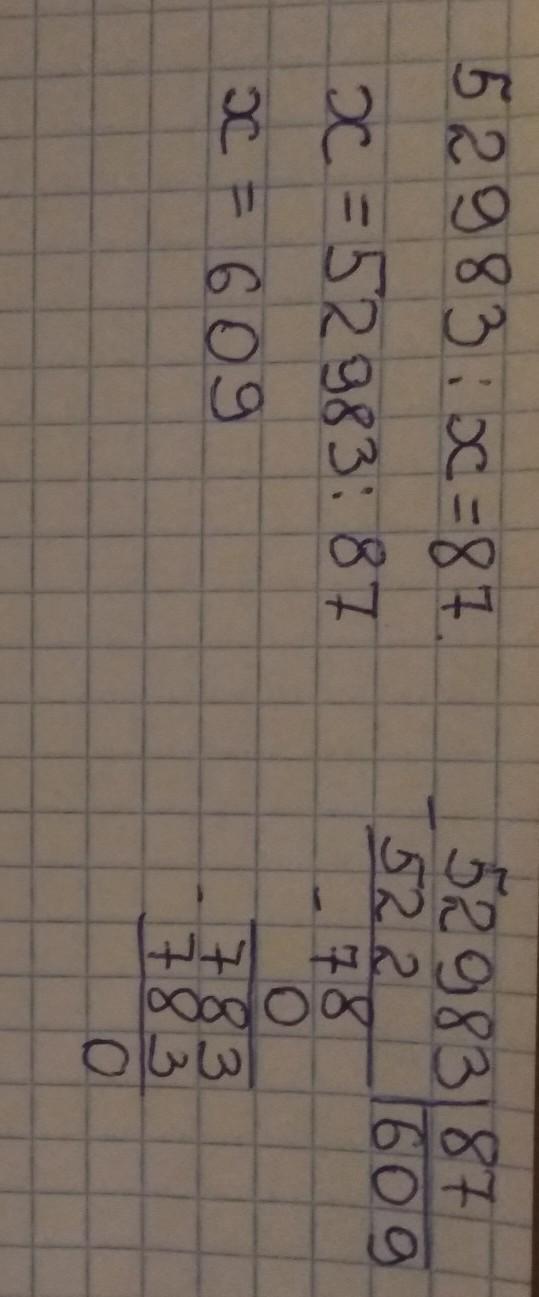 52983 : x = 87
x = 52983 : 87
x = 609
- 52983 | 87
522 609
- 78
0
- 783
783
0